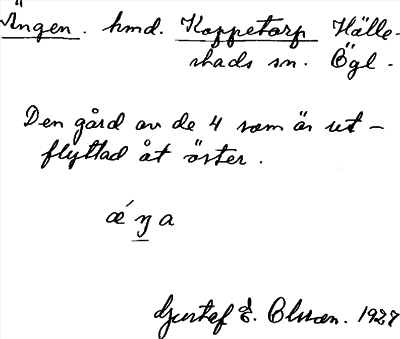 Ängen. hmd. Koppetorp Hälle-
stads sn. Ögl -
Den gård av de 4 som är ut-
flyttad åt öster.
ǽŋa
Gustaf E. Olsson. 1927